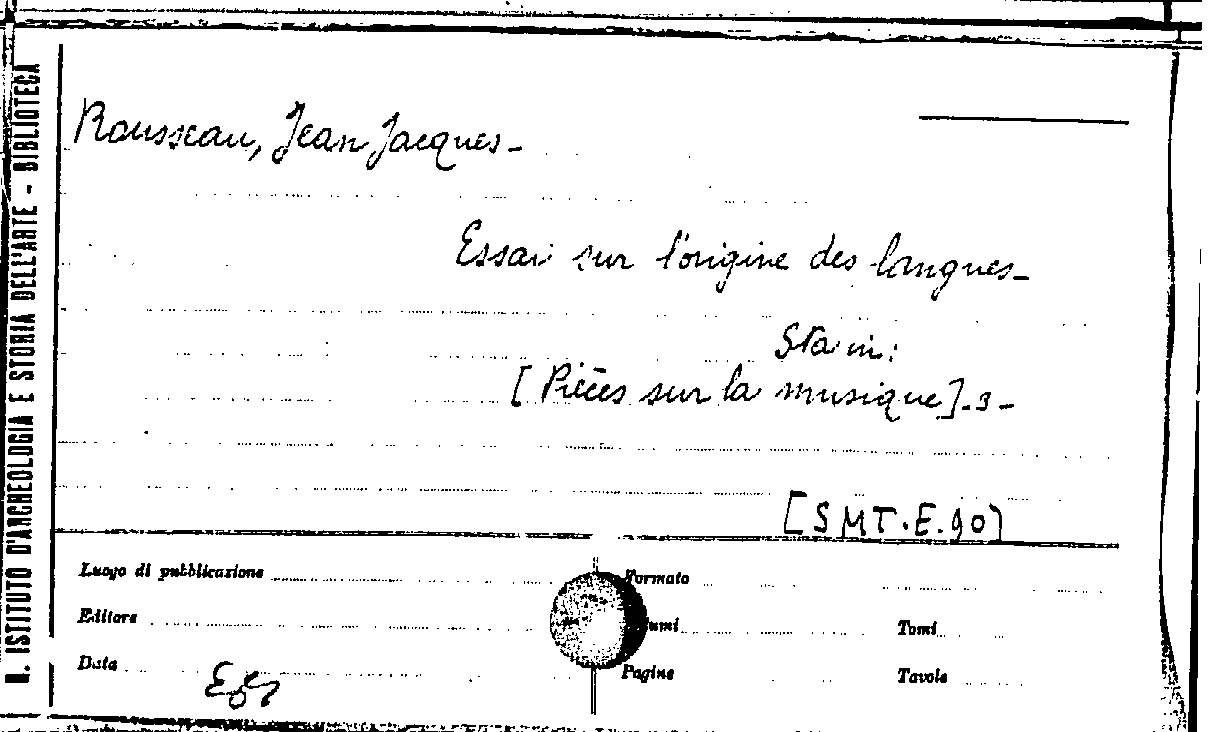 R. ISTITUTO D'ARCHEOLOGIA E STORIA DELL'ARTE - BIBLIOTECA
Rousseau, Jean Jacques-
Essai sur l'origine des langues-
Sta in:
[Pièces sur la musique]-3-
[SMT.E.90]
Luogo di pubblicazione
Formato
Editore
Tomi
Data
Pagine
Tavole